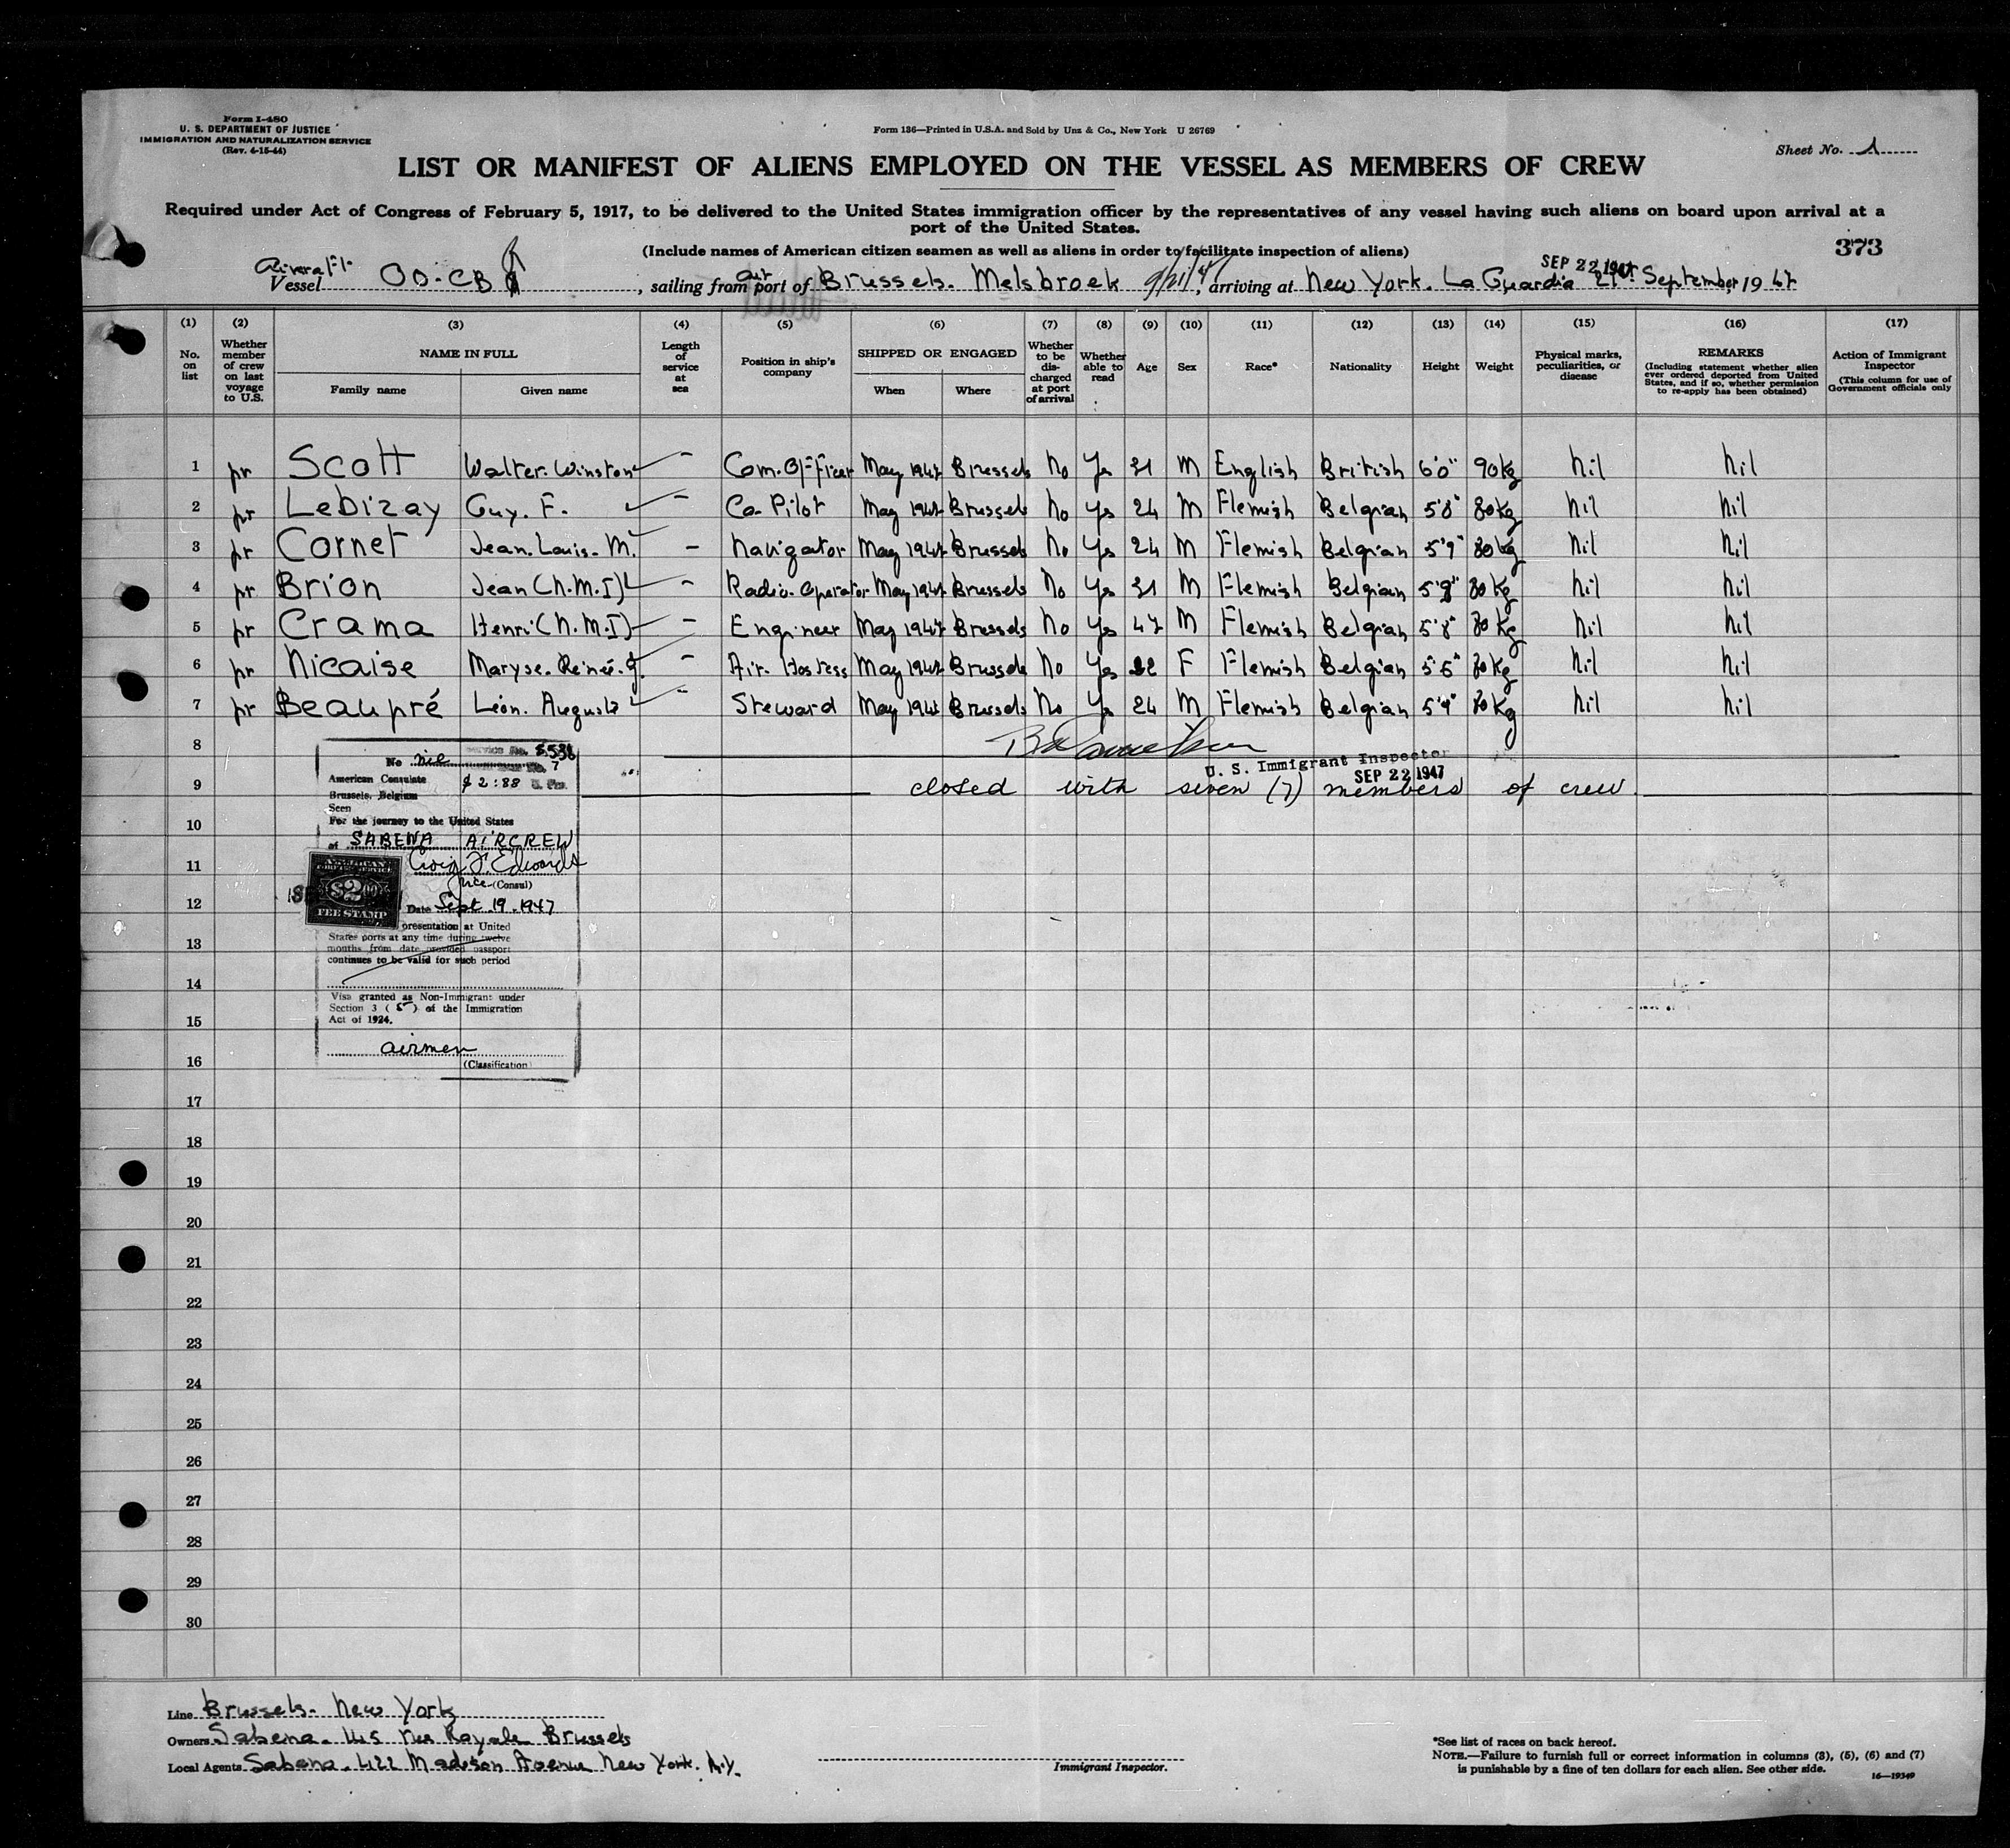 Form I-480
U. S. DEPARTMENT OF JUSTICE
IMMIGRATION AND NATURALIZATION SERVICE
(Rev. 4-15-44)
Form 136—Printed in U.S.A. and Sold by Unz & Co., New York U 26769
Sheet No. 1
LIST OR MANIFEST OF ALIENS EMPLOYED ON THE VESSEL AS MEMBERS OF CREW
Required under Act of Congress of February 5, 1917, to be delivered to the United States immigration officer by the representatives of any vessel having such aliens on board upon arrival at a
port of the United States.
(Include names of American citizen seamen as well as aliens in order to facilitate inspection of aliens)
373
Aircraft
SEP 22 1947
Vessel OO-CB , sailing from air port of Brussels. Melsbroek 9/21/47, arriving at New York. La Guardia 21st September, 1947
(1) (2) (3) (4) (5) (6) (7) (8) (9) (10) (11) (12) (13) (14) (15) (16) (17)
No. on list
Whether member of crew on last voyage to U.S.
NAME IN FULL
Family name Given name
Length of service at sea
Position in ship's company
SHIPPED OR ENGAGED
When Where
Whether to be discharged at port of arrival
Whether able to read
Age
Sex
Race*
Nationality
Height
Weight
Physical marks, peculiarities, or disease
REMARKS
(Including statement whether alien ever ordered deported from United States, and if so, whether permission to re-apply has been obtained)
Action of Immigrant Inspector
(This column for use of Government officials only
1 pr Scott Walter. Winston — Com. Officer May 1947 Brussels No Yes 31 M English British 6'0" 90kg Nil Nil
2 pr LeBizay Guy. F. — Co-Pilot May 1947 Brussels No Yes 24 M Flemish Belgian 5'8" 80kg Nil Nil
3 pr Cornet Jean. Louis. M. — Navigator May 1947 Brussels No Yes 24 M Flemish Belgian 5'9" 80kg Nil Nil
4 pr Brion Jean (N.M.I) — Radio. Operator May 1947 Brussels No Yes 31 M Flemish Belgian 80kg Nil Nil
5 pr Crama Henri (N.M.I) — Engineer May 1947 Brussels No Yes 47 M Flemish Belgian 5'8" 70Kg Nil Nil
6 pr Nicaise Maryse. Reineé. J. — Air. Hostess May 1947 Brussels No Yes F Flemish Belgian 5'5" 70Kg Nil Nil
7 pr Beaupré Léon. Auguste — Steward May 1947 Brussels No Yes 24 M Flemish Belgian 5'9" 70Kg Nil Nil
8
U. S. Immigrant Inspector
SEP 22 1947
9 closed with seven (7) members of crew
10
11
12
13
14
15
16
17
18
19
20
21
22
23
24
25
26
27
28
29
30
Service No. 5536
No nil No. 7
American Consulate $ 2:88
Brussels, Belgium
Seen
For the journey to the United States
of SABENA AIRCREW
Craig F. Edwards
Vice-(Consul)
$2.00
FEE STAMP
Date Sept. 19. 1947
presentation at United
States ports at any time during twelve
months from date provided passport
continues to be valid for such period
Visa granted as Non-Immigrant under
Section 3 (5) of the Immigration
Act of 1924.
airmen
(Classification)
Line Brussels. New York
Owners Sabena. 145 Rue Royale Brussels
Local Agents Sabena. 422 Madison Avenue New York. N.Y.
Immigrant Inspector.
*See list of races on back hereof.
NOTE.—Failure to furnish full or correct information in columns (3), (5), (6) and (7)
is punishable by a fine of ten dollars for each alien. See other side.
16—19349